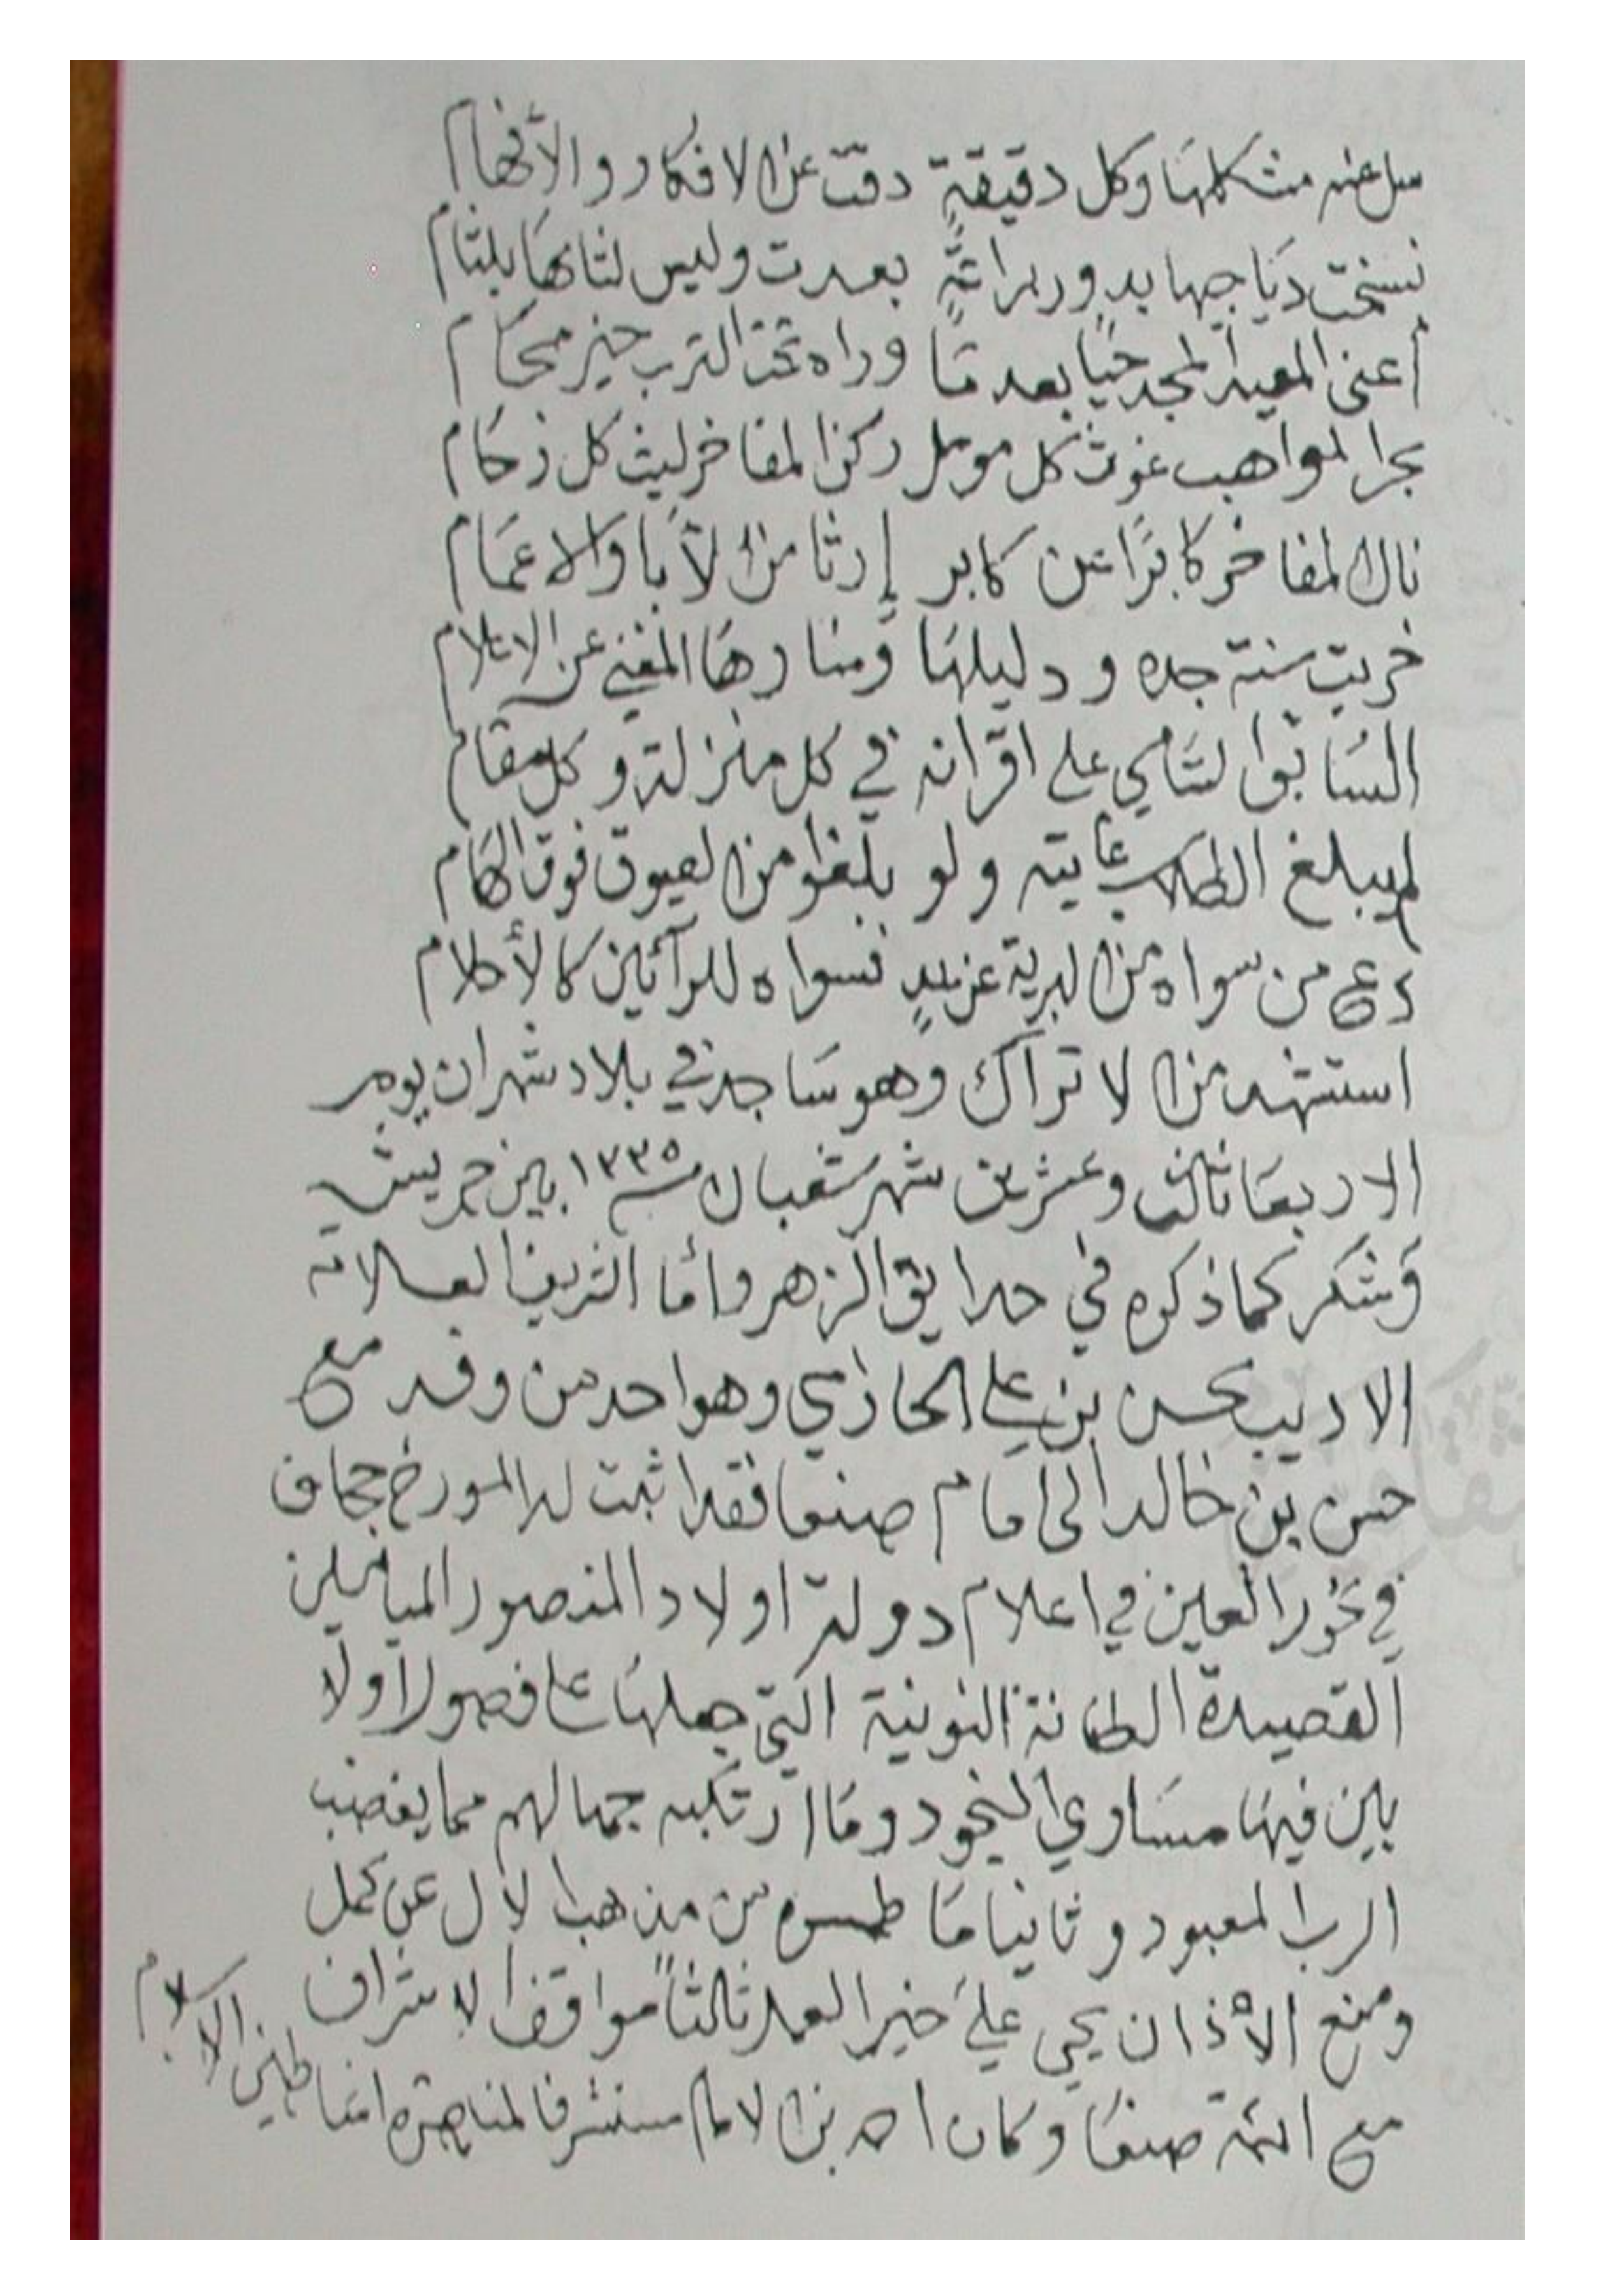 سل عنه مشكلها وكل دقيقةٍ دقت عن الافكار والأفهام
نسخت دياجيها بدور براعةٍ بعدت وليس لثامها بلثام
أعني المعيد المجد حيًا بعد ما وراه تحت الترب خير محام
بحر المواهب غوث كل مومل ركن المفاخر ليث كل زحام
نال المفاخر كابرًا عن كابر إرثا من الآبا والاعمام
خريت سنة جده ودليلها ومنارها المغني عن الاعلام
السابق السامي على اقرانه في كل منزلة وكل مقام
لم يبلغ الطلاب غايته ولو بلغوا من العيوق فوق الهام
دع من سواه من البرية عن يدٍ فسواه للرآئين كالأحلام
استشهد من الاتراك وهو ساجد في بلاد شهران يوم
الاربعا ثالث وعشرين شهر شعبان سنة ١٢٣٥ بين خريش
وشكر كما ذكره في حدايق الزهر وأما الشريف العلامة
الاديب حسن بن علي الحازمي وهو احد من وفد مع
حسن بن خالد الى امام صنعا فقد اثبت له المورخ جحاف
في نحور العين في اعلام دولة اولاد المنصور الميامين
القصيدة الطنانة النونية التي جعلها على فصول اولا
بين فيها مساوي النجود وما ارتكبه جهالهم مما يغضب
الرب المعبود وثانيا ما طمسوه من مذهب الال عن كمل
ومنع الأذان بحي على خير العمل ثالثاً مواقف الاشراف
مع ائمة صنعا وكان احمد بن الامام مستشرفا لمناصرة امنا طين الاسلام